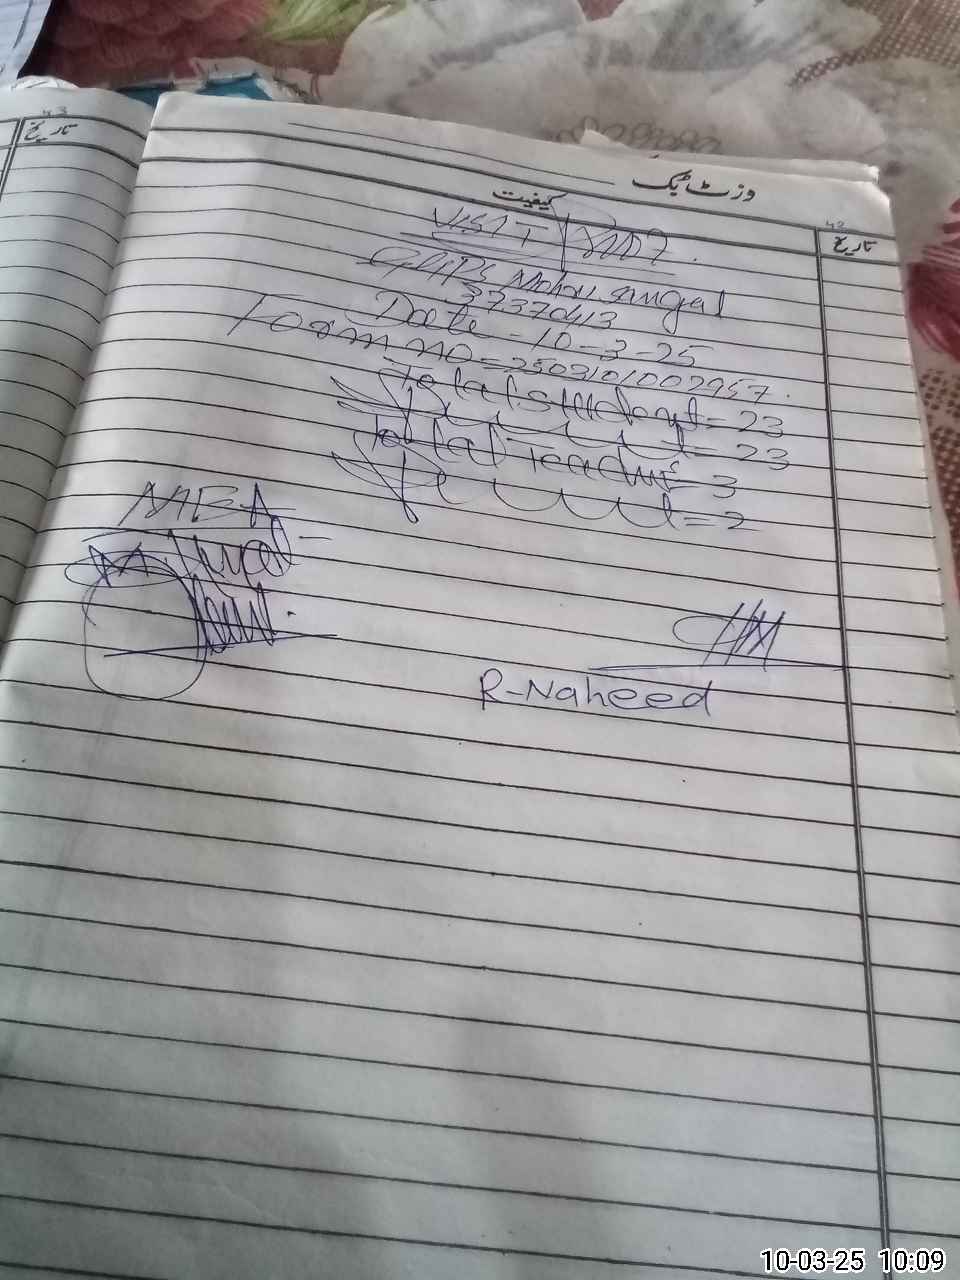 43
تاریخ
وزٹ بک
42
کیفیت
تاریخ
VISIT
GPS Mohou sangal
37370413
Date - 10-3-25
Form no = 2503101002957.
Total student = 23
Present = 23
Total Teacher = 3
Present = 2
MEA
R-Naheed
10-03-25 10:09